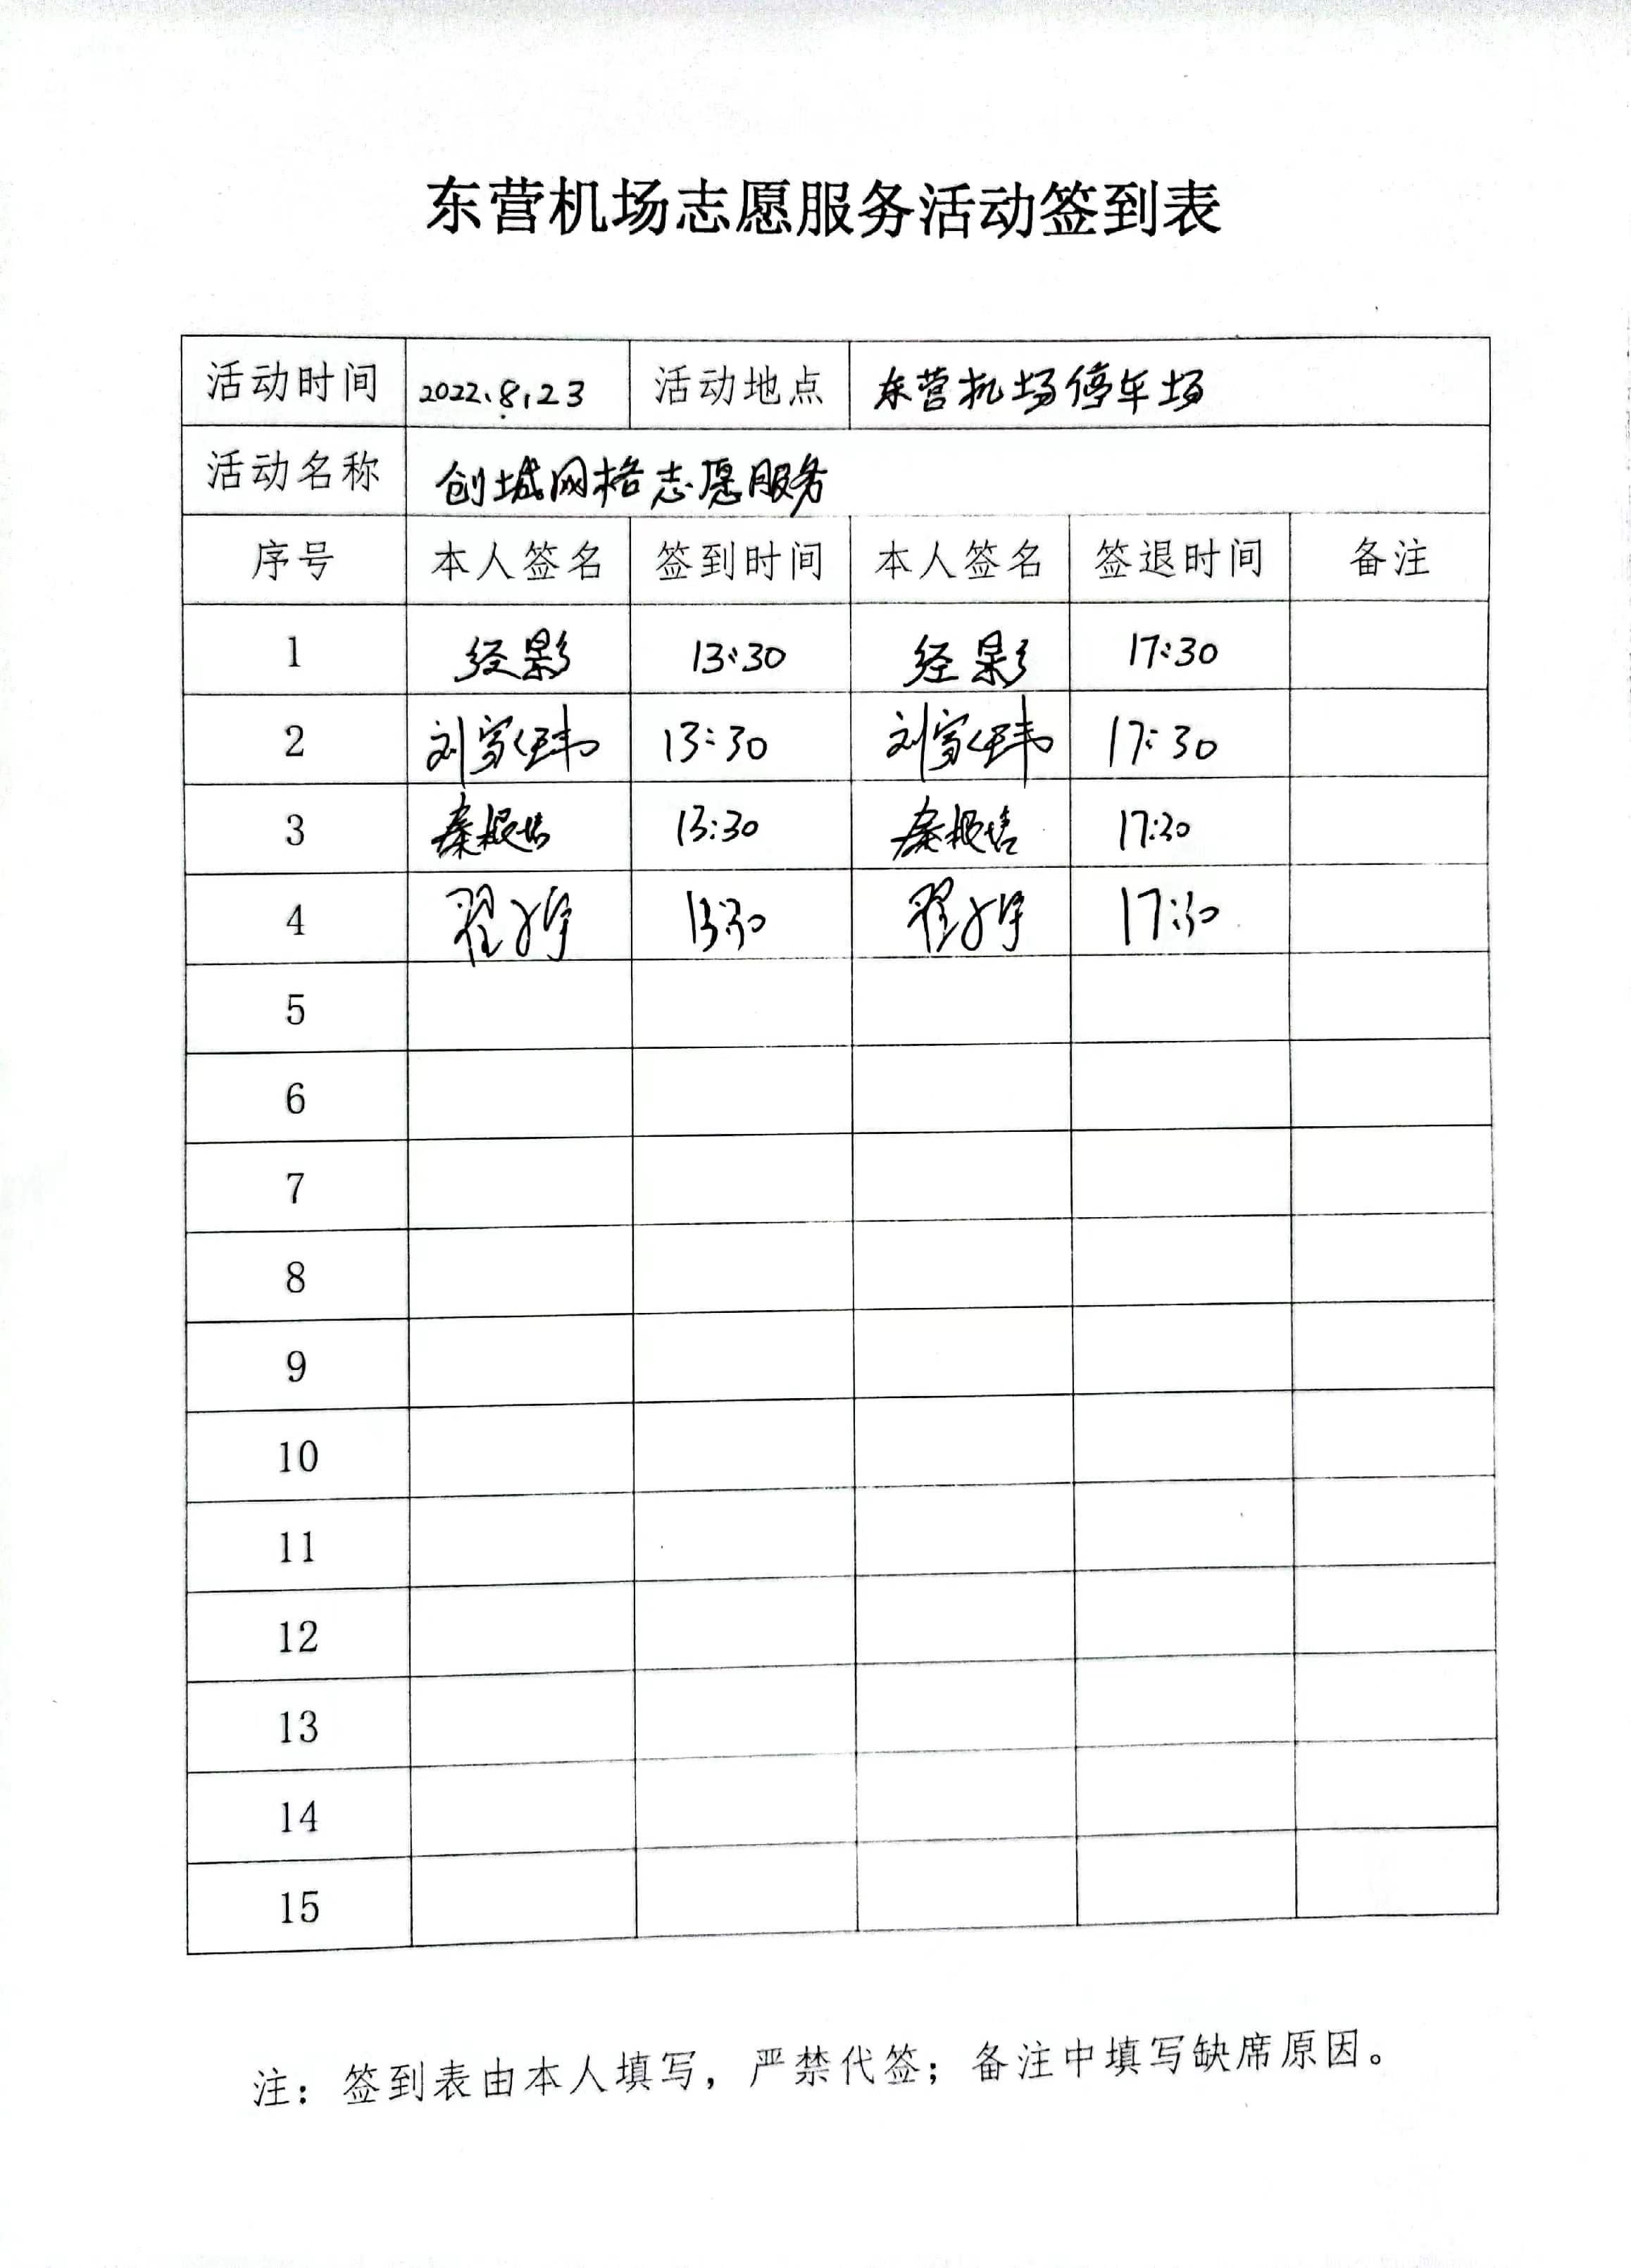 东营机场志愿服务活动签到表
活动时间 2022.8.23 活动地点 东营机场停车场
活动名称 创城网格志愿服务
序号 本人签名 签到时间 本人签名 签退时间 备注
1 经影 13:30 经影 17:30
2 刘 13:30 刘 17:30
3 秦 13:30 秦 17:30
4 翟 13:30 翟 17:30
5
6
7
8
9
10
11
12
13
14
15
注：签到表由本人填写，严禁代签；备注中填写缺席原因。